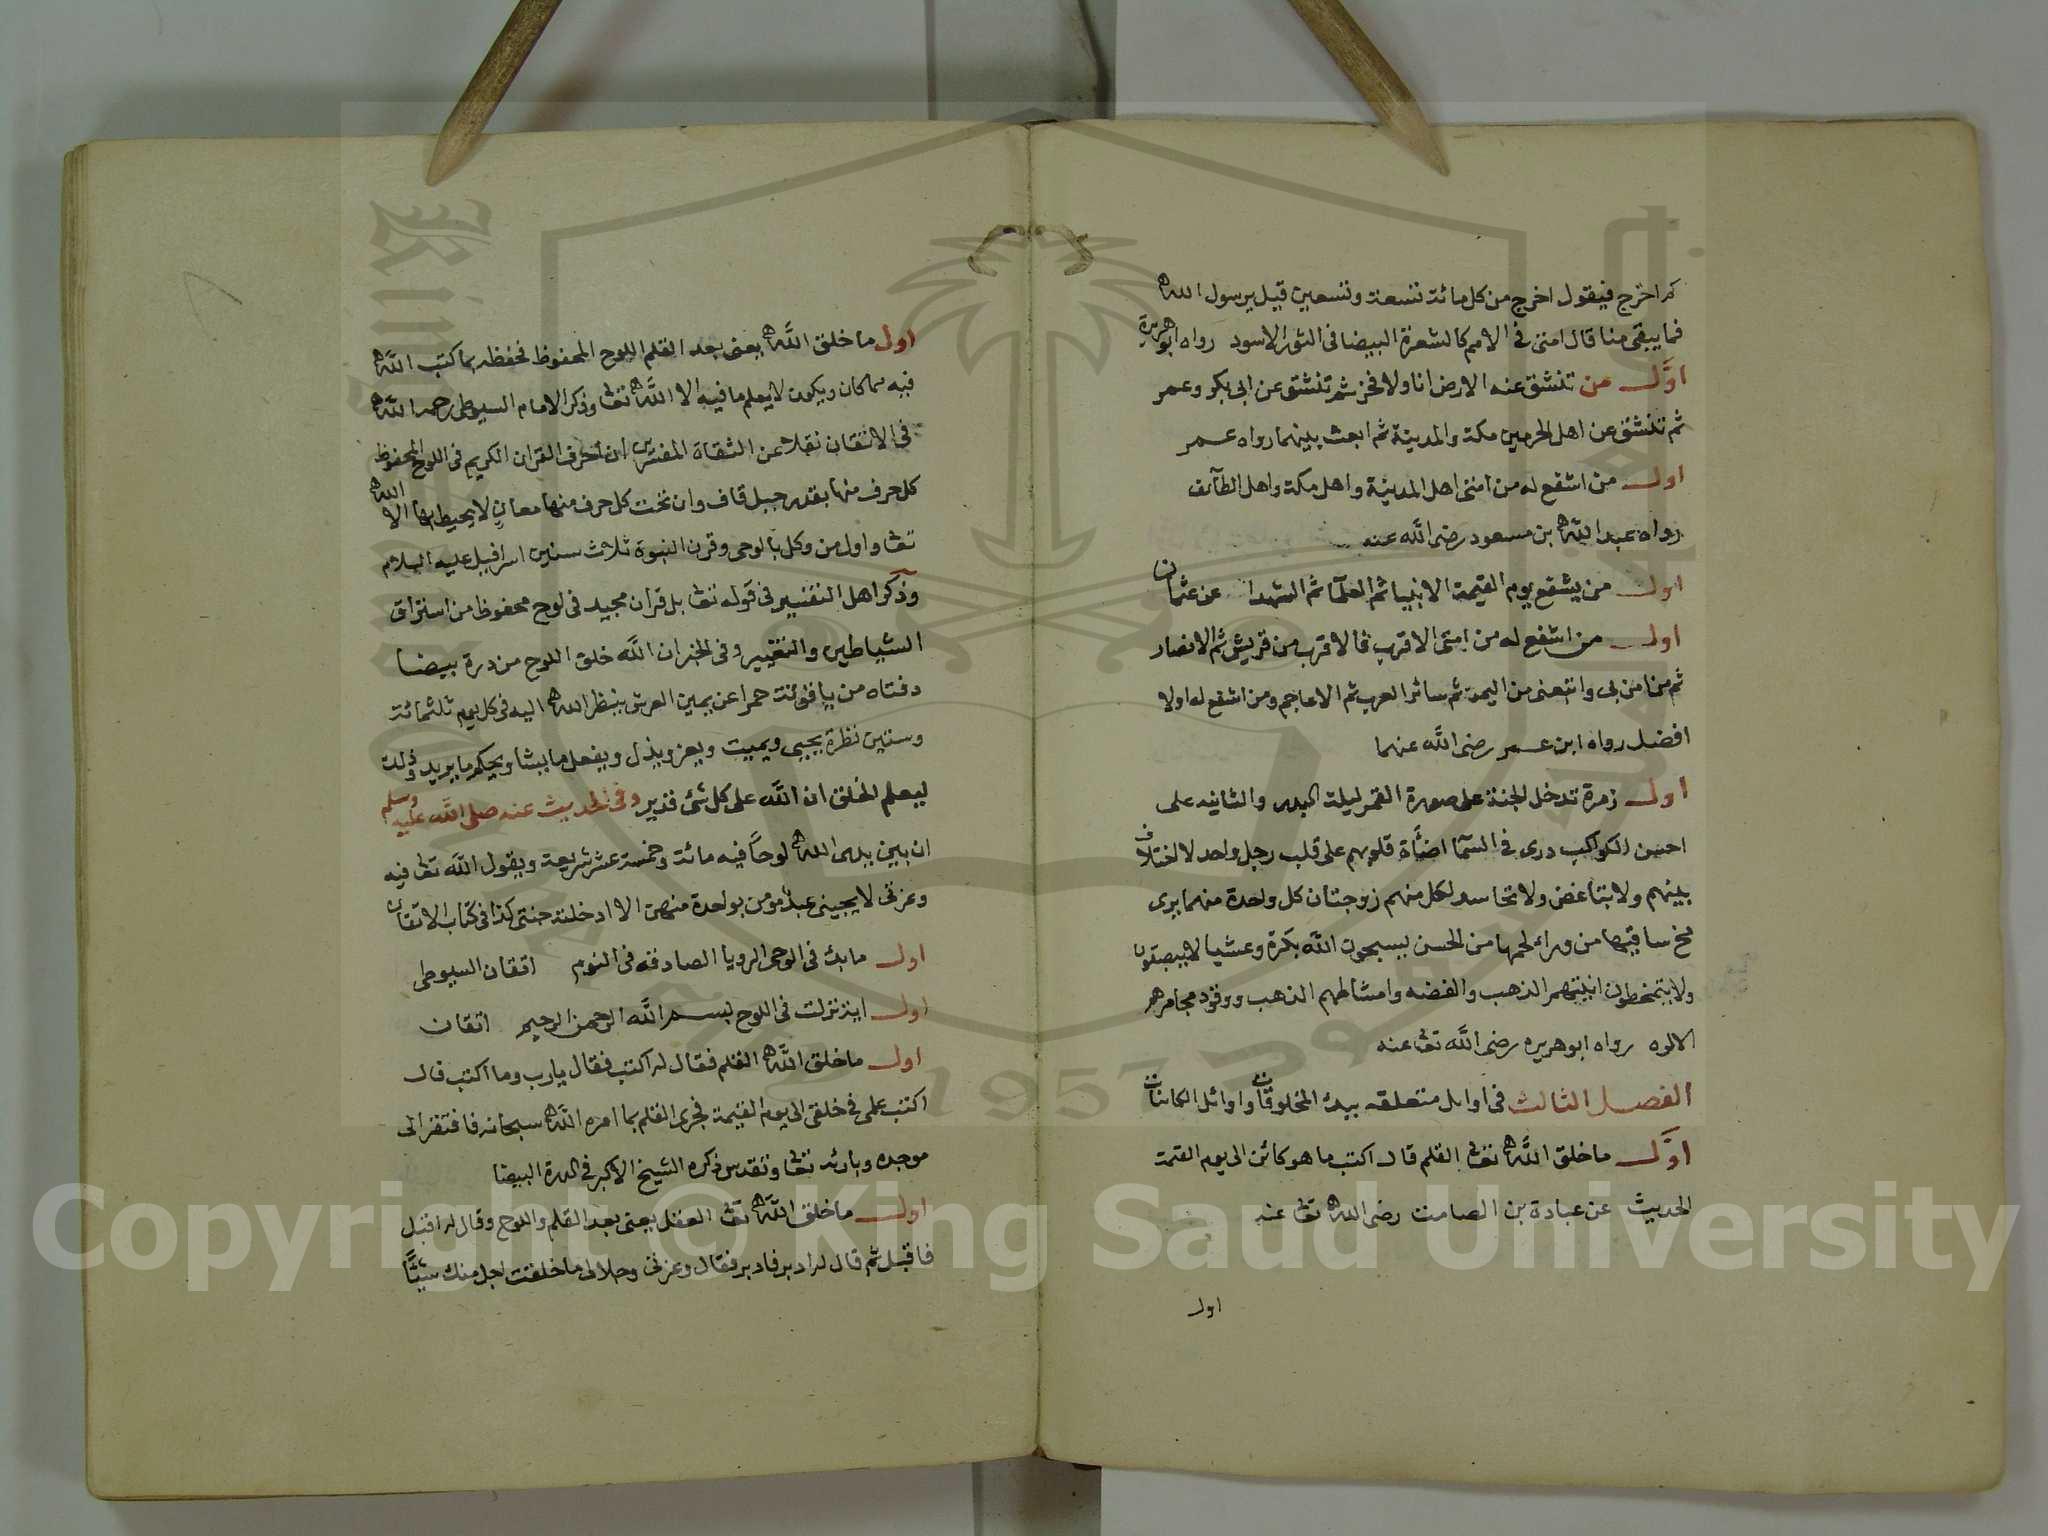 كم اخرج فيقول اخرج من كل مائة تسعة وتسعين قيل يرسول الله
فما يبقى منا قال امتى فى الامم كالشعرة البيضا فى الثور الاسود رواه ابو هريرة
اول من تنشق عنه الارض انا ولا فخر ثم تنشق عن ابى بكر وعمر
ثم تنشق عن اهل الحرمين مكة والمدينة ثم ابعث بينهما رواه عمر
اول من اشفع له من امتى اهل المدينة واهل مكة واهل الطآئف
رواه عبد الله بن مسعود رضى الله عنه
اول من يشفع يوم القيمة الانبيا ثم العلمآ ثم الشهدا عن عثمان
اول من اشفع له من امتى الاقرب فالاقرب من قريش ثم الانصار
ثم من امن بى واتبعنى من اليمن ثم سائر العرب ثم الاعاجم ومن اشفع له اولا
افضل رواه ابن عمر رضى الله عنهما
اول زمرة تدخل الجنة على صورة القمر ليلة البدر والثانيه على
احسن الكواكب درى فى السمآ اضآة قلوبهم على قلب رجل واحد لا اختلاف
بينهم ولا تباغض ولا تحاسد لكل منهم زوجتان كل واحدة منهما يرى
مخ ساقيها من وراء لحمها من الحسن يسبحون الله بكرة وعشيا لا يبصقون
ولا يتمخطون انيتهم الذهب والفضه وامشاطهم الذهب ووقود مجامرهم
الالوه رواه ابو هريره رضى الله تعا عنه
الفصل الثالث فى اوايل متعلقه ببدء المخلوقات واوائل الكائنات
اول ما خلق الله تعا القلم قال اكتب ما هو كائن الى يوم القيمة
الحديث عن عبادة بن الصامت رضى الله تعا عنه
اول
اول ما خلق الله يعنى بعد القلم اللوح المحفوظ فحفظه بما كتب الله
فيه مما كان ويكون لا يعلم ما فيه الا الله تعا وذكر الامام السيوطى رحمه الله
فى الاتقان نقلا عن الثقاة المفسرين ان احرف القران الكريم فى اللوح المحفوظ
كل حرف منها بقدر جبل قاف وان تحت كل حرف منها معان لا يحيط بها الا الله
تعا واول من وكل بالوحى وقرن النبوة ثلاث سنين اسرافيل عليه السلام
وذكر اهل التفسير فى قوله تعا بل قران مجيد فى لوح محفوظ من استراق
الشياطين والتغيير وفى الخبر ان الله خلق اللوح من درة بيضا
دفتاه من ياقوتة حمرا عن يمين العرش ينظر الله اليه فى كل يوم ثلثمائة
وستين نظرة يحيى ويميت ويعز ويذل ويفعل ما يشا ويحكم ما يريد وذلك
ليعلم الخلق ان الله على كل شئ قدير وفى الحديث عنه صلى الله عليه وسلم
ان بين يدى الله لوحا فيه مائة وخمسة عشر شريعة ويقول الله تعا فيه
وعزتى لا يجيئنى عبد مومن بواحدة منهن الا ادخلته جنتى كذا فى كتاب الاتقان
اول ما بدئ فى الوحى الرويا الصادقه فى النوم اتقان السيوطى
اول اية نزلت فى اللوح بسم الله الرحمن الرحيم اتقان
اول ما خلق الله القلم فقال له اكتب فقال يارب وما اكتب قال
اكتب علمى فى خلقى الى يوم القيمة فجرى القلم بما امره الله سبحانه فافتقر الى
موجده وبارئه تعا وتقدس ذكره الشيخ الاكبر فى الدرة البيضا
اول ما خلق الله تعا العقل يعنى بعد القلم واللوح وقال له اقبل
فاقبل ثم قال له ادبر فادبر فقال وعزتى وجلالى ما خلقت اجل منك شيئا
Copyright © King Saud University
1957